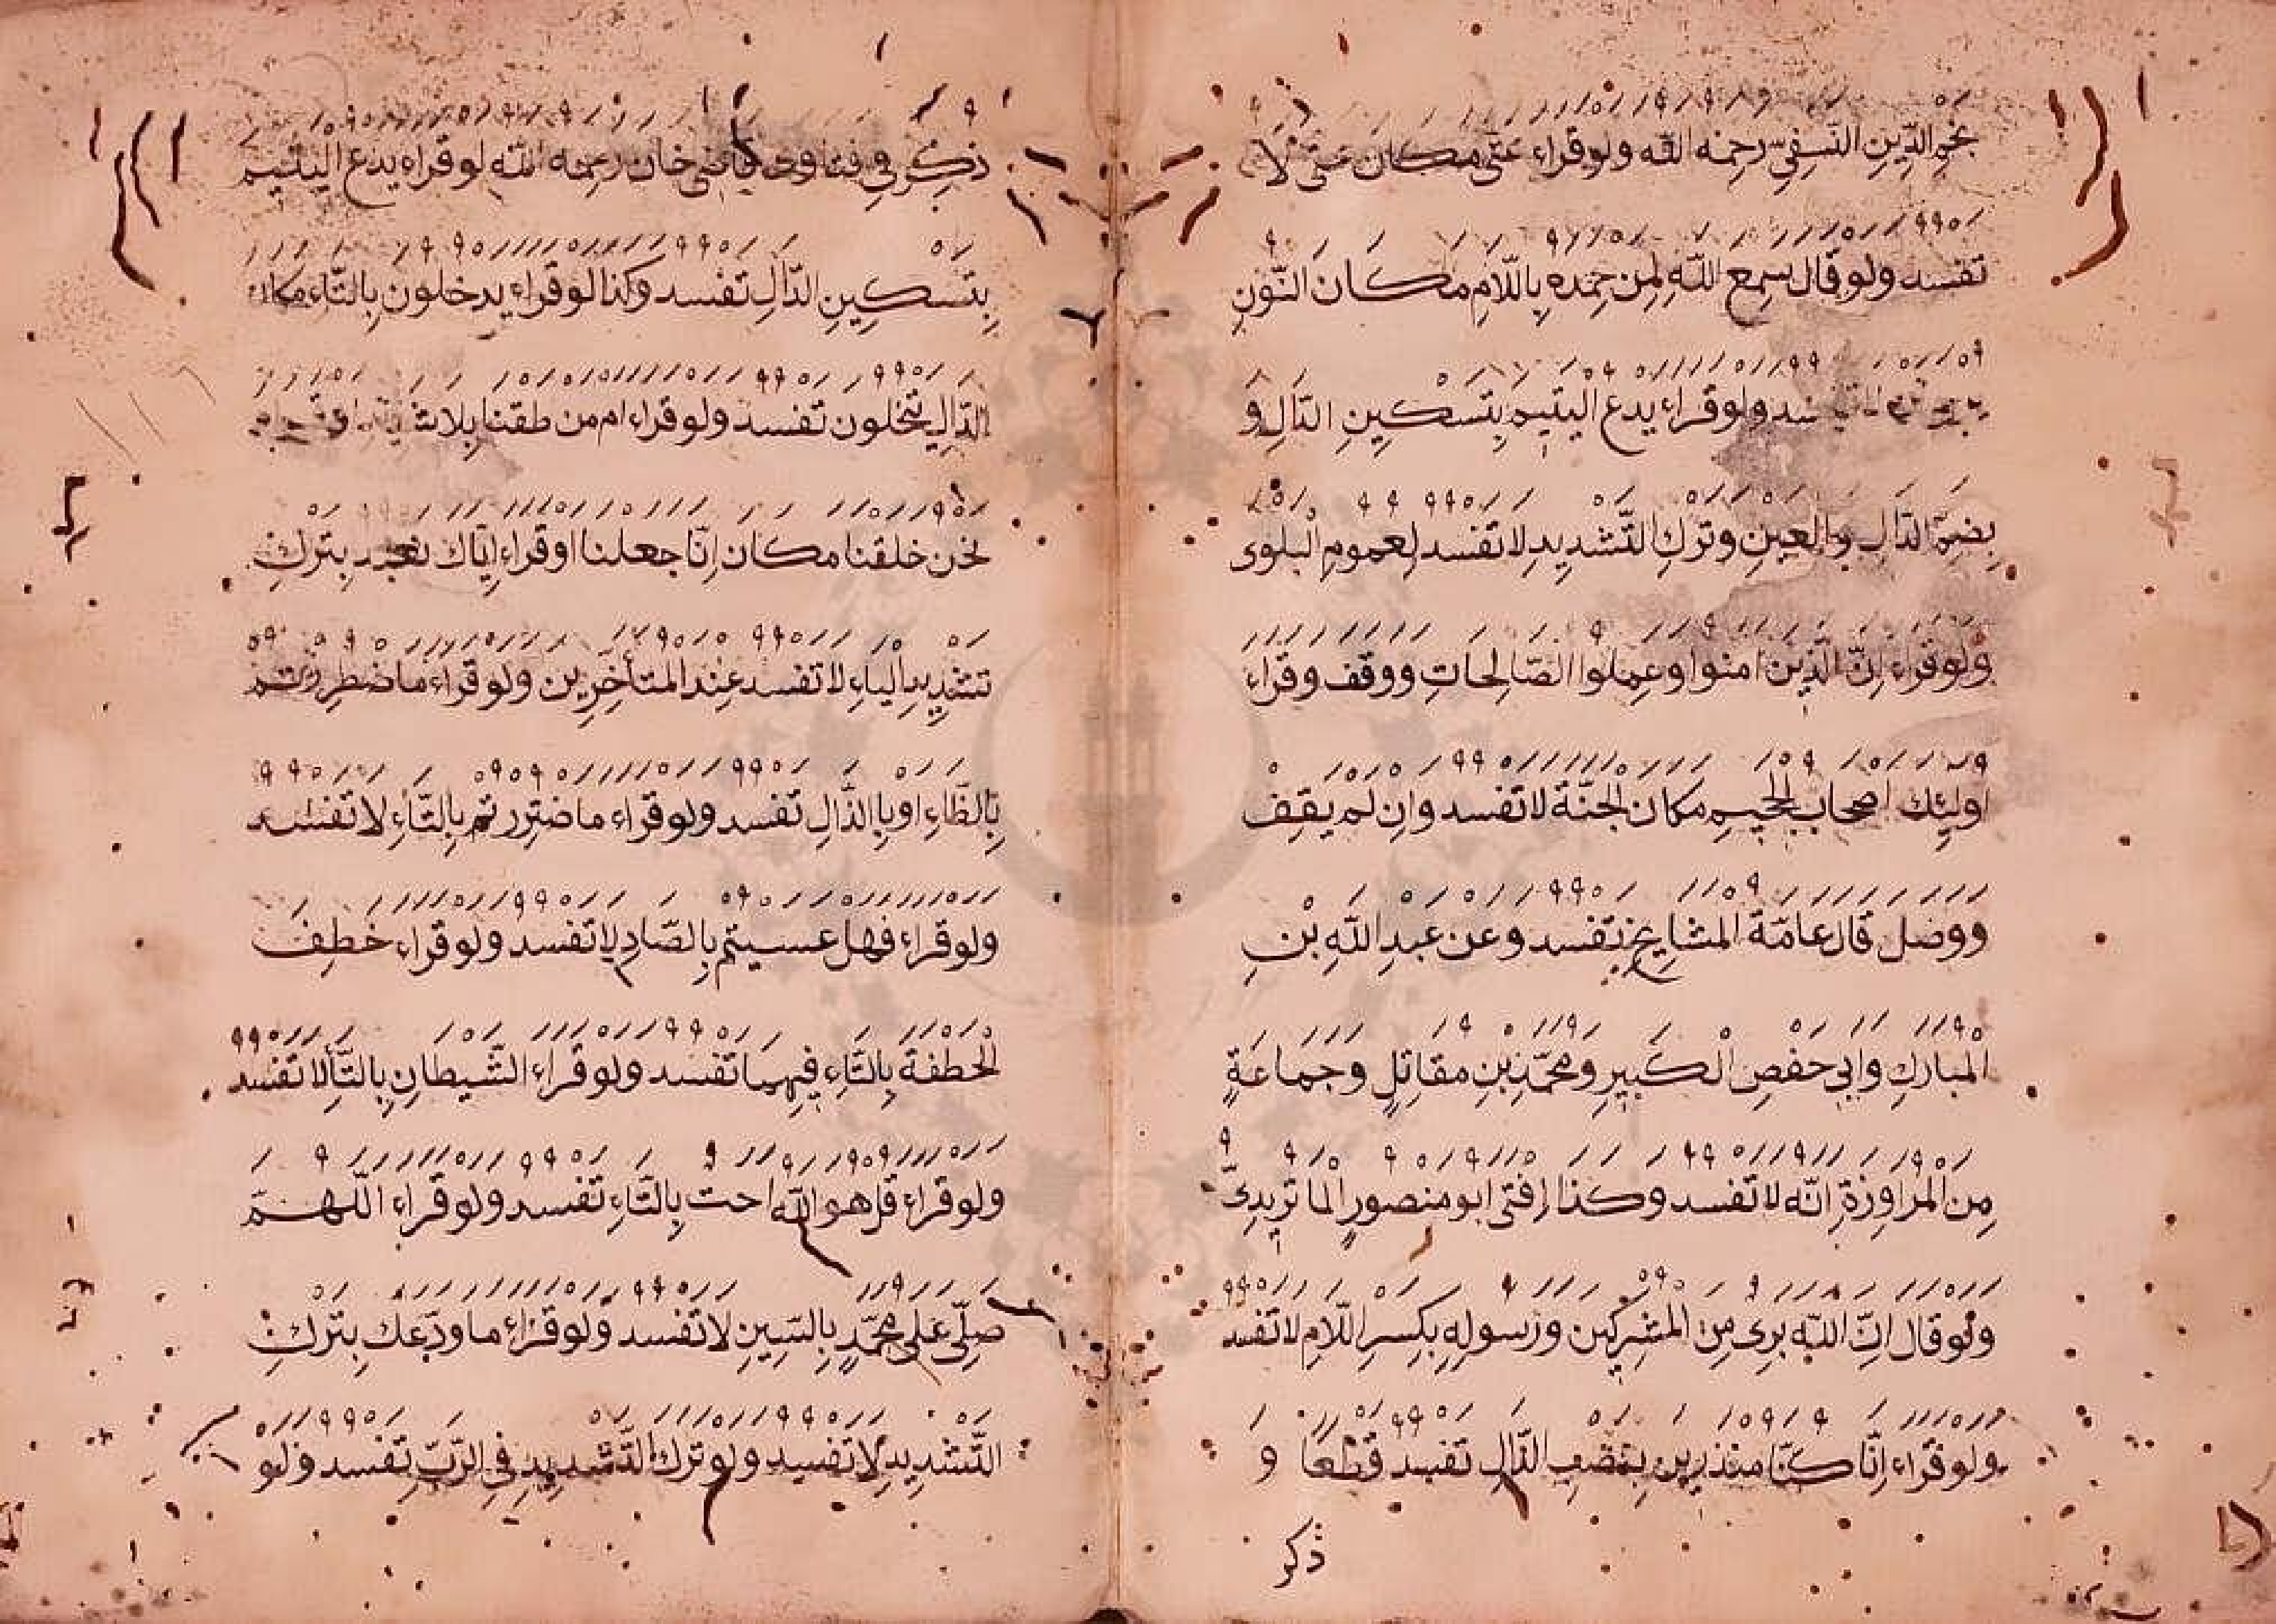 نجم الدِّينِ النَّسَفِيِّ رحِمَه اللّه ولو قراء عتّى مكان حتّى لا
تفسد ولو قال سمع اللّه لِمن حمِده بِاللّامِ مكان النّونِ
سد ولو قراء يدع اليتيم بِتسكِينِ الدّالِ و
بِضمِّ الدّالِ والعينِ وترك التّشدِيدِ لا تفسد لِعمومِ البلوى
ولو قراء اِنّ الّذين امنوا وعمِلوا الصّالِحاتِ ووقف وقراء
اولئِك اصحاب الجحيمِ مكان الجنّة لا تفسد واِن لم يقِف
ووصل قال عامّة المشايخ تفسد وعن عبدِ اللّهِ بنِ
المباركِ وابِى حفصِ الكبِيرِ ومحمّدِ بنِ مقاتِلٍ وجماعةٍ
مِن المراوِزةِ انّه لا تفسد وكذا افتى ابو منصورٍ الماترِيدِىّ
ولو قال اِنّ اللّه برِىء مِن المشرِكِين ورسولِهِ بِكسرِ اللّامِ لا تفسد
ولو قراء اِنّا كنّا منذرِين بِنصبِ الذّالِ تفسد قطعا و
ذكر
ذكِر فِى فتاوى قاضى خان رحمه اللّه لو قراء يدع اليتيم
بِتسكِينِ الدّالِ تفسد وكذا لو قراء يدخلون بِالتّاءِ مكان
الدّالِ يتخلون تفسد ولو قراء ام من طقنا بلا
نحن خلقنا مكان اِنّا جعلنا او قراء اِيّاك نعبد بِتركِ
تشدِيدِ الياءِ لا تفسد عِند المتأخّرِين ولو قراء ما ضطرِرتم
بِالظّاءِ او بِا الذّالِ تفسد ولو قراء ما ضترِرتم بِالتّاءِ لا تفسد
ولو قراء فهل عسيتم بِالصّادِ لا تفسد ولو قراء خطِف
الخطفة بِالتّاءِ فِيهِما تفسد ولو قراء الشّيطانِ بِالتّأِ لا تفسد
ولو قراء قل هو اللّه احت بِالتّاءِ تفسد ولو قراء اللّهمّ
صلِّى على محمّدٍ بِالسِّينِ لا تفسد ولو قراء ما ودّعك بِتركِ
التّشدِيدِ لا تفسد ولو ترك التّشدِيدِ فِى الرّبِّ تفسد ولو